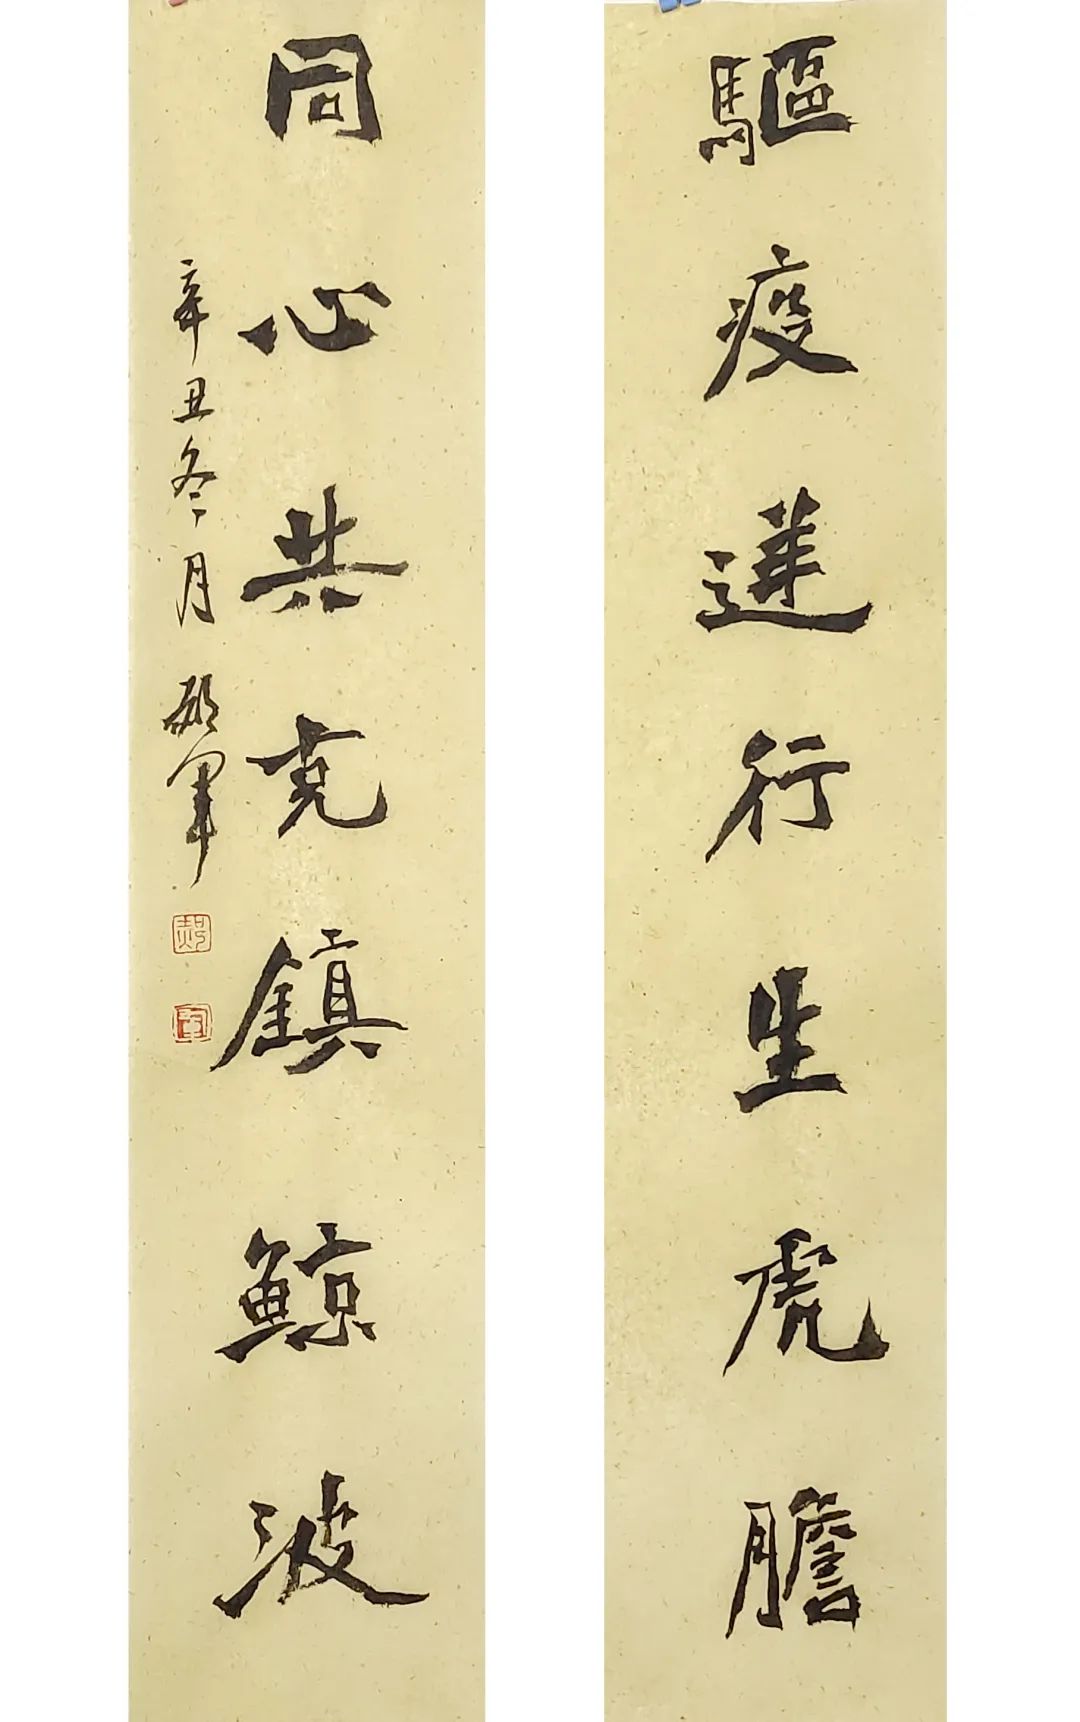 驅疫逆行生虎膽
同心共克鎮鯨波
辛丑冬月 郝軍
郝
軍